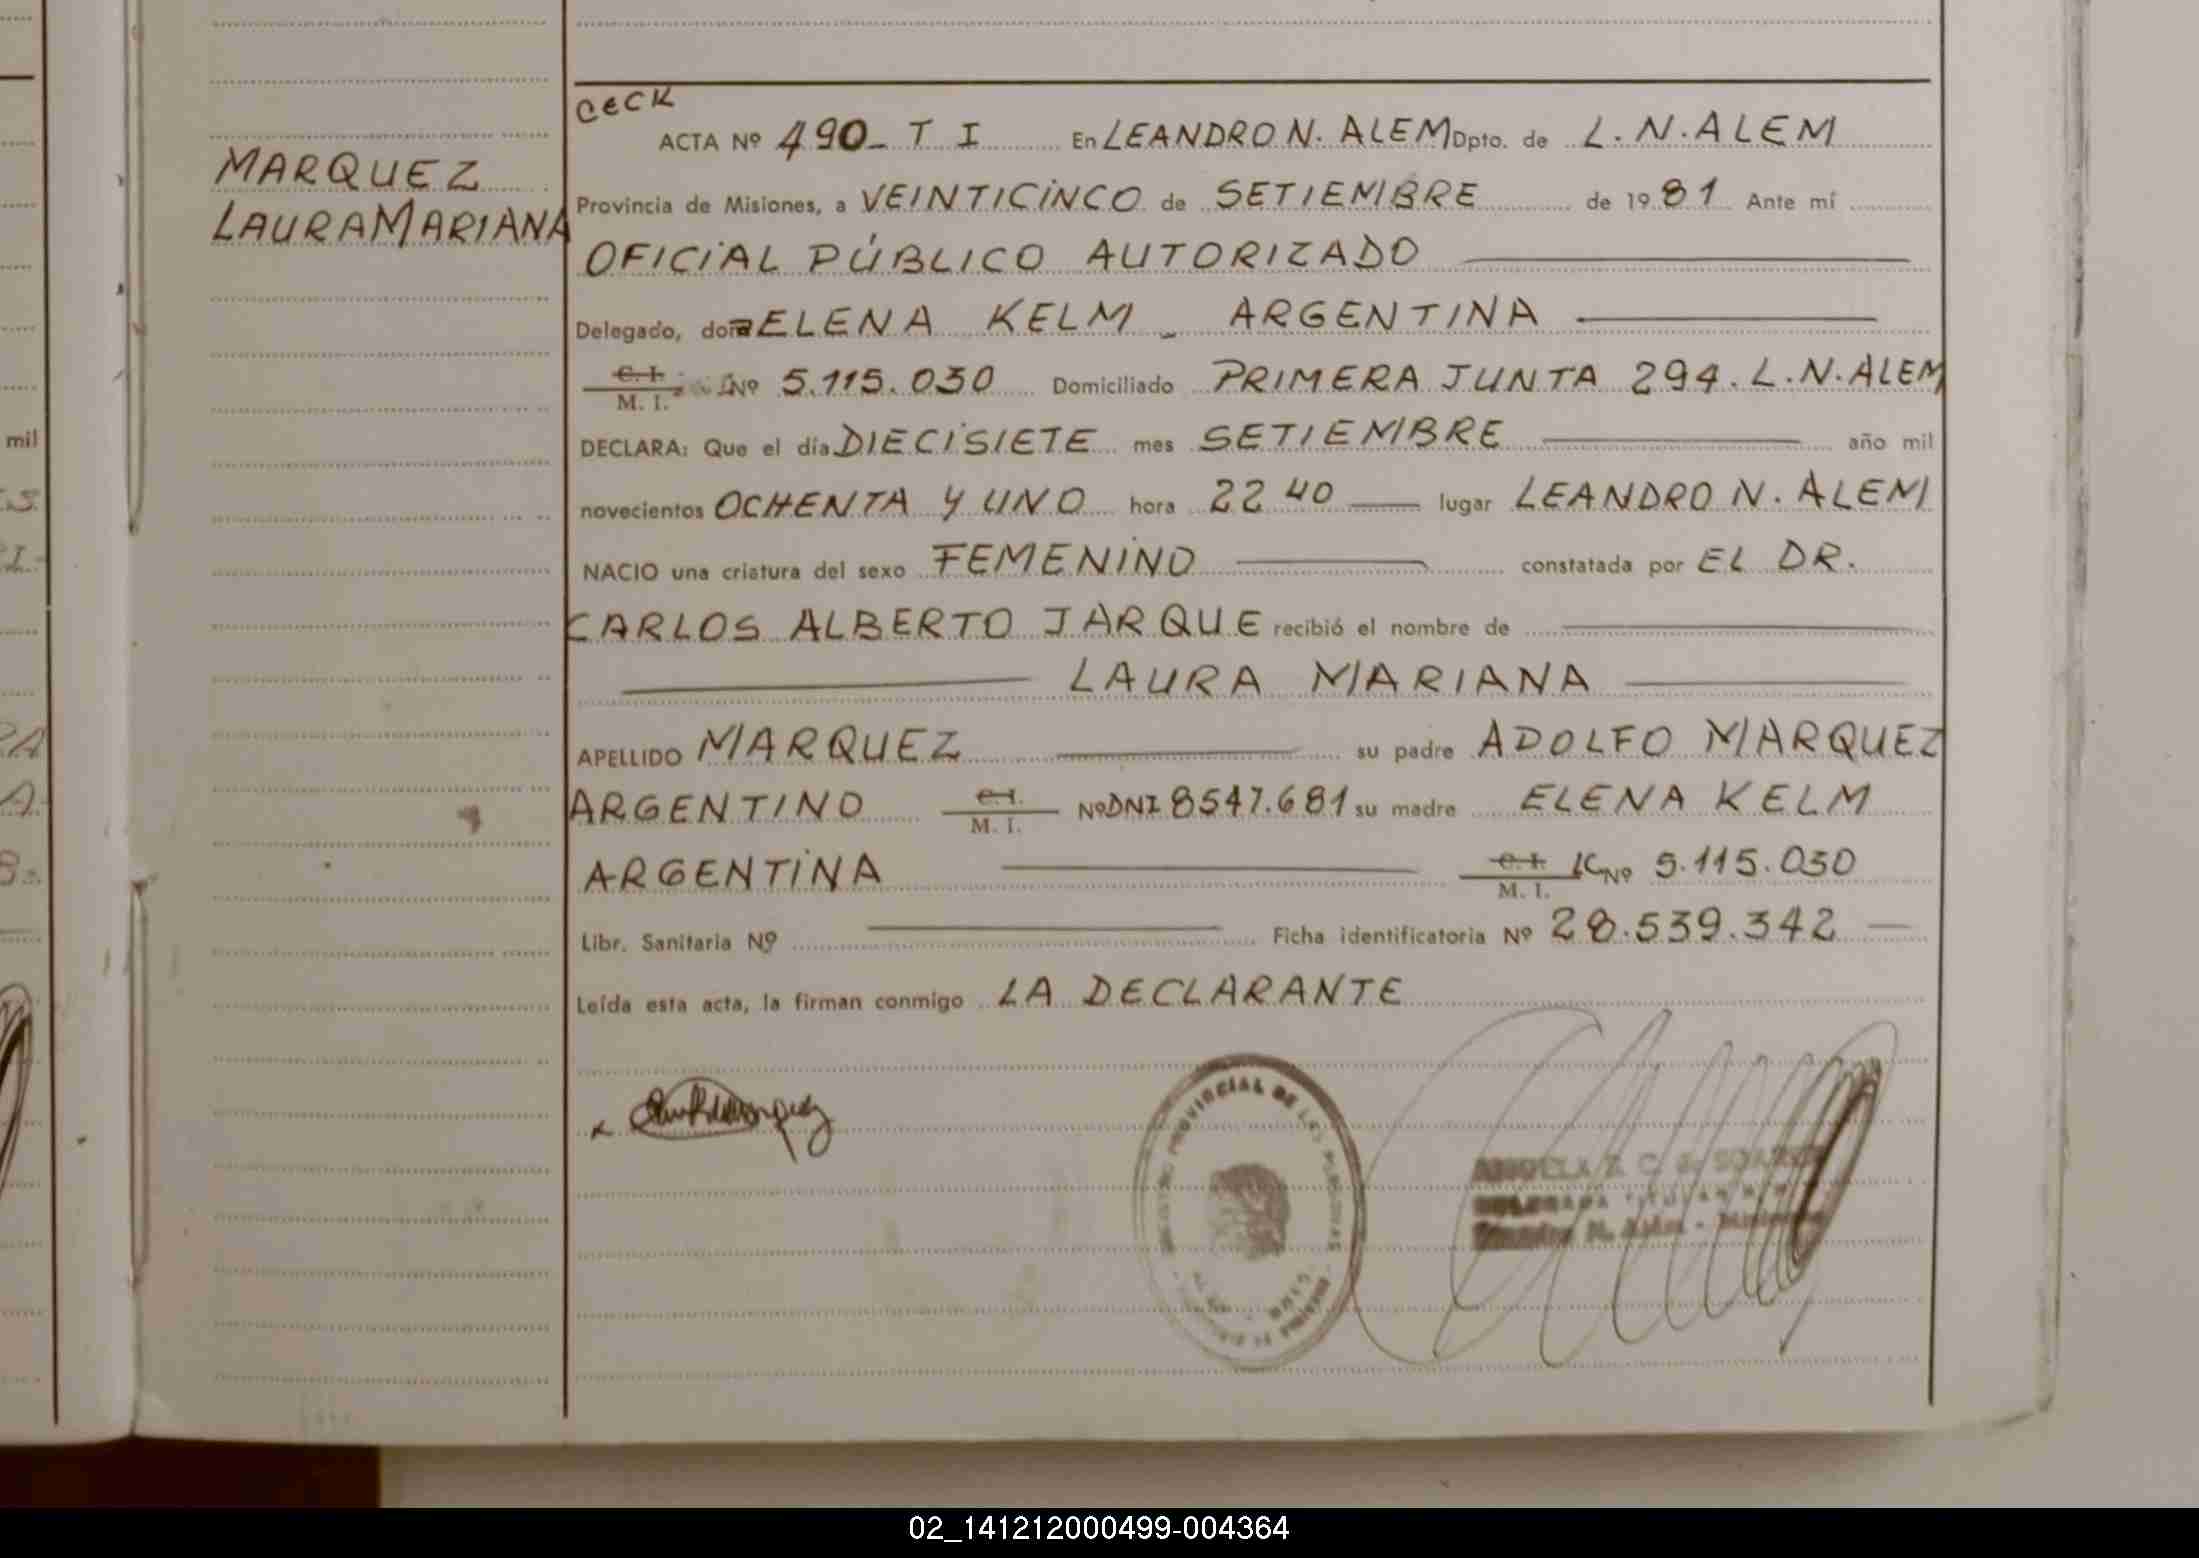 MARQUEZ
LAURA MARIANA
CECK
ACTA Nº 490_ T I En LEANDRO N. ALEM Dpto. de L. N. ALEM
Provincia de Misiones, a VEINTICINCO de SETIEMBRE de 1981 Ante mí
OFICIAL PÚBLICO AUTORIZADO
Delegado, doña ELENA KELM _ ARGENTINA
C. I.
M. I. Nº 5.115.030 Domiciliado PRIMERA JUNTA 294. L.N. ALEM
DECLARA: Que el día DIECISIETE mes SETIEMBRE año mil
novecientos OCHENTA Y UNO hora 22 40 lugar LEANDRO N. ALEM
NACIO una criatura del sexo FEMENINO constatada por EL DR.
CARLOS ALBERTO JARQUE recibió el nombre de
LAURA MARIANA
APELLIDO MARQUEZ su padre ADOLFO MARQUEZ
ARGENTINO C. I. M. I. Nº DNI 8547.681 su madre ELENA KELM
ARGENTINA C. I. M. I. LC Nº 5.115.030
Libr. Sanitaria Nº Ficha identificatoria Nº 28.539.342
Leída esta acta, la firman conmigo LA DECLARANTE
PROVINCIAL DE LAS PERSONAS
mil
02_141212000499-004364